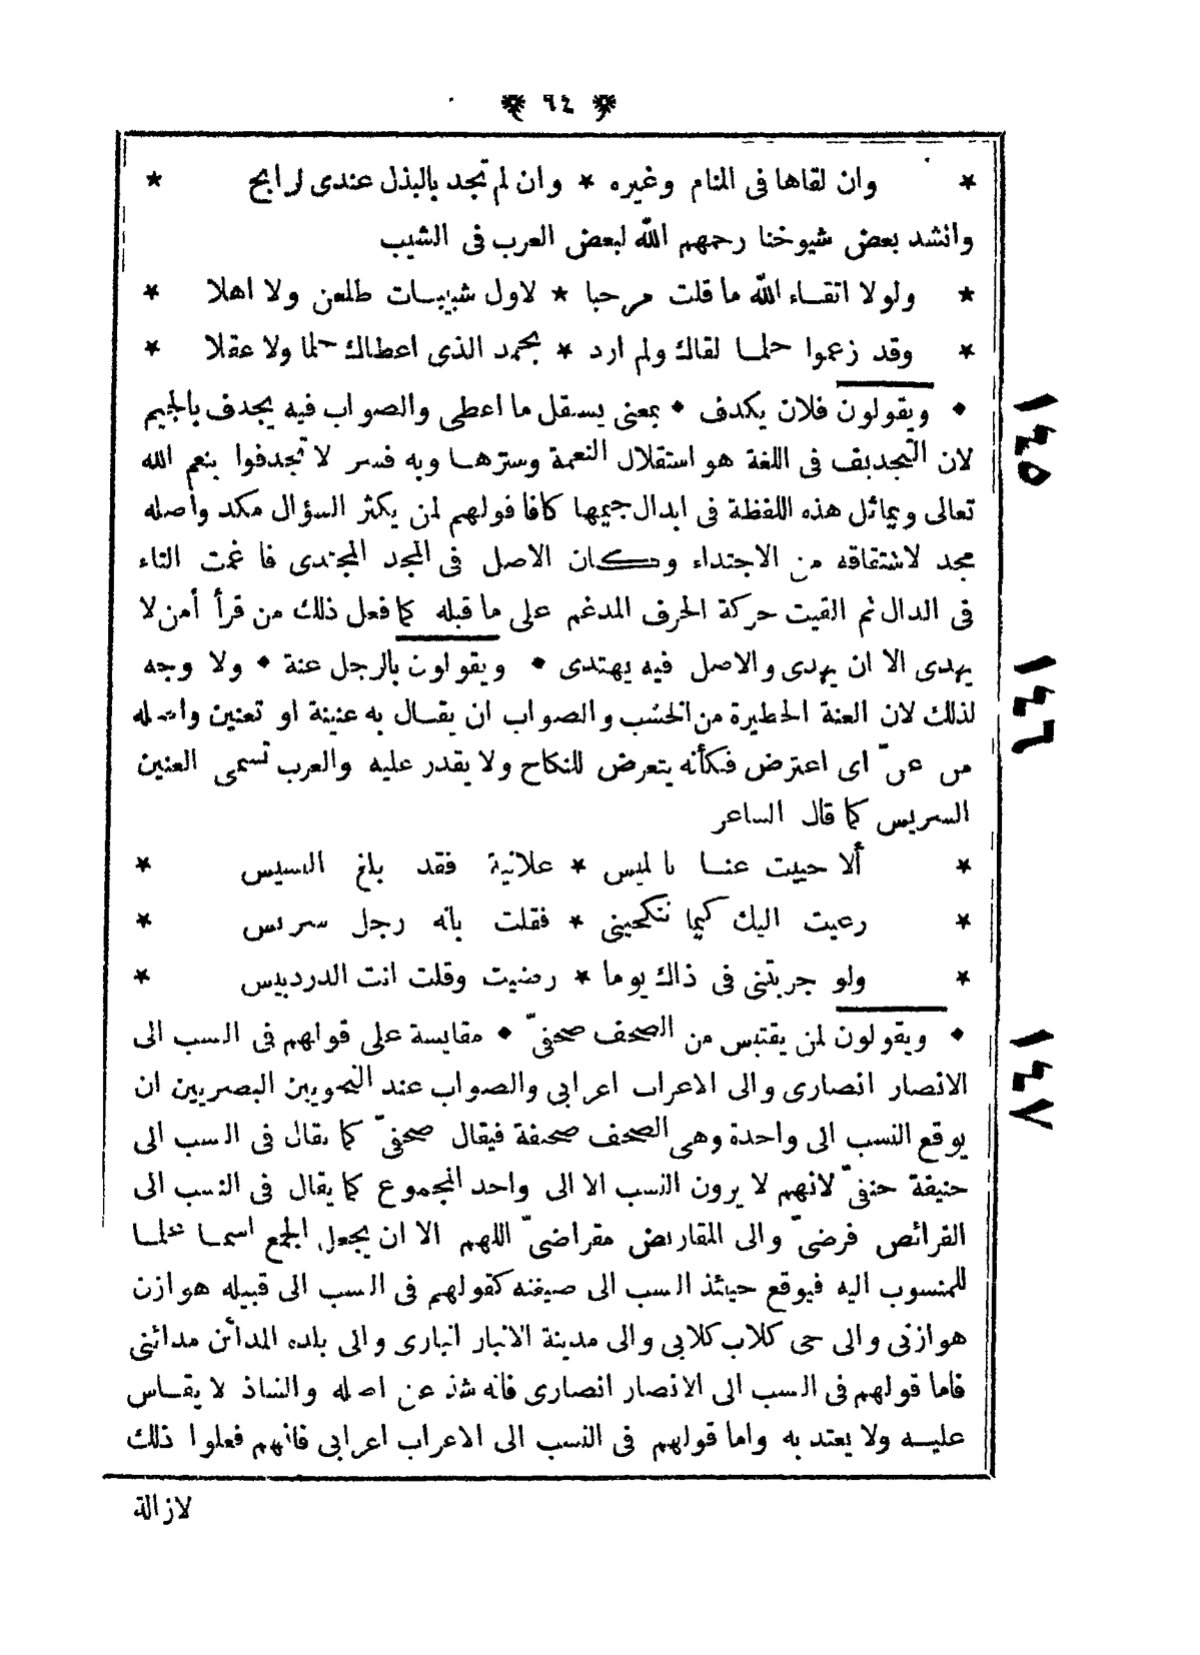 ٦٤
* وان لقاها فى المنام وغيره * وان لم تجد بالبذل عندى لرابح *
وانشد بعض شيوخنا رحمهم الله لبعض العرب فى الشيب
* ولولا اتقاء الله ما قلت مرحبا * لاول شيبات طلعن ولا اهلا *
* وقد زعموا حلما لقاك ولم ارد * بحمد الذى اعطاك حلما ولا عقلا *
١٤٥
• ويقولون فلان يكدف • بمعنى يستقل ما اعطى والصواب فيه يجدف بالجيم
لان التجديف فى اللغة هو استقلال النعمة وسترها وبه فسر لا تجدفوا بنعم الله
تعالى ويماثل هذه اللفظة فى ابدال جيمها كافا قولهم لمن يكثر السؤال مكد وأصله
مجد لاشتقاقه من الاجتداء وكان الاصل فى المجد المجتدى فادغمت التاء
فى الدال ثم القيت حركة الحرف المدغم على ما قبله كما فعل ذلك من قرأ أمن لا
١٤٦
يهدى الا ان يهدى والاصل فيه يهتدى • ويقولون بالرجل عنة • ولا وجه
لذلك لان العنة الحظيرة من الخشب والصواب ان يقال به عنينة او تعنين واصله
من عنّ اى اعترض فكأنه يتعرض للنكاح ولا يقدر عليه والعرب تسمى العنين
السريس كما قال الشاعر
* ألا حييت عنا يا لميس * علانية فقد بلغ النسيس *
* رغبت اليك كيما تنكحينى * فقلت بانه رجل سريس *
* ولو جربتنى فى ذاك يوما * رضيت وقلت انت الدردبيس *
١٤٧
• ويقولون لمن يقتبس من الصحف صحفىّ • مقايسة على قولهم فى النسب الى
الانصار انصارى والى الاعراب اعرابى والصواب عند النحويين البصريين ان
يوقع النسب الى واحدة وهى الصحف صحيفة فيقال صحفىّ كما يقال فى النسب الى
حنيفة حنفىّ لانهم لا يرون النسب الا الى واحد المجموع كما يقال فى النسب الى
الفرائص فرضىّ والى المقاريض مقراضىّ اللهم الا ان يجعل الجمع اسما علما
للمنسوب اليه فيوقع حينئذ النسب الى صيغته كقولهم فى النسب الى قبيله هوازن
هوازنى والى حى كلاب كلابى والى مدينة الانبار انبارى والى بلده المدائن مدائنى
فاما قولهم فى النسب الى الانصار انصارى فانه شذ عن اصله والشاذ لا يقاس
عليه ولا يعتد به واما قولهم فى النسب الى الاعراب اعرابى فانهم فعلوا ذلك
لازالة